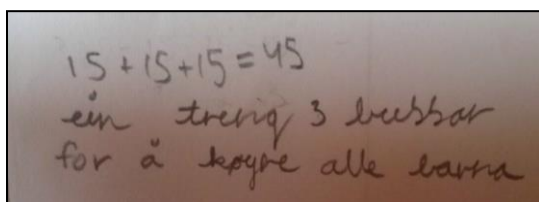 15+15+15=45
ein treng 3 bussar
for å køyre alle barna